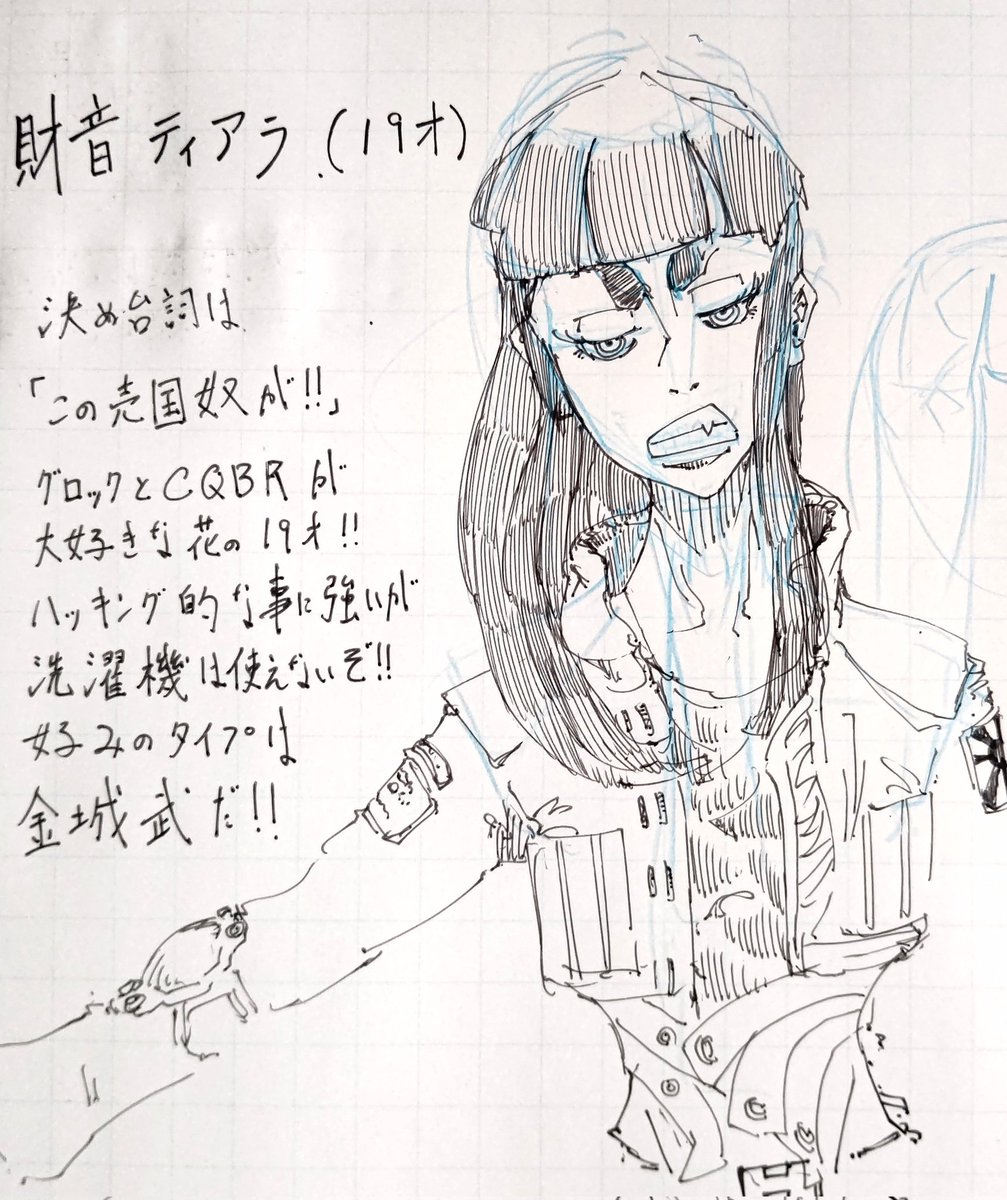 財音 ティアラ (19才)
決め台詞は
「この売国奴が!!」
グロックとCQBRが
大好きな花の19才!!
ハッキング的な事に強いが
洗濯機は使えないぞ!!
好みのタイプは
金城武だ!!